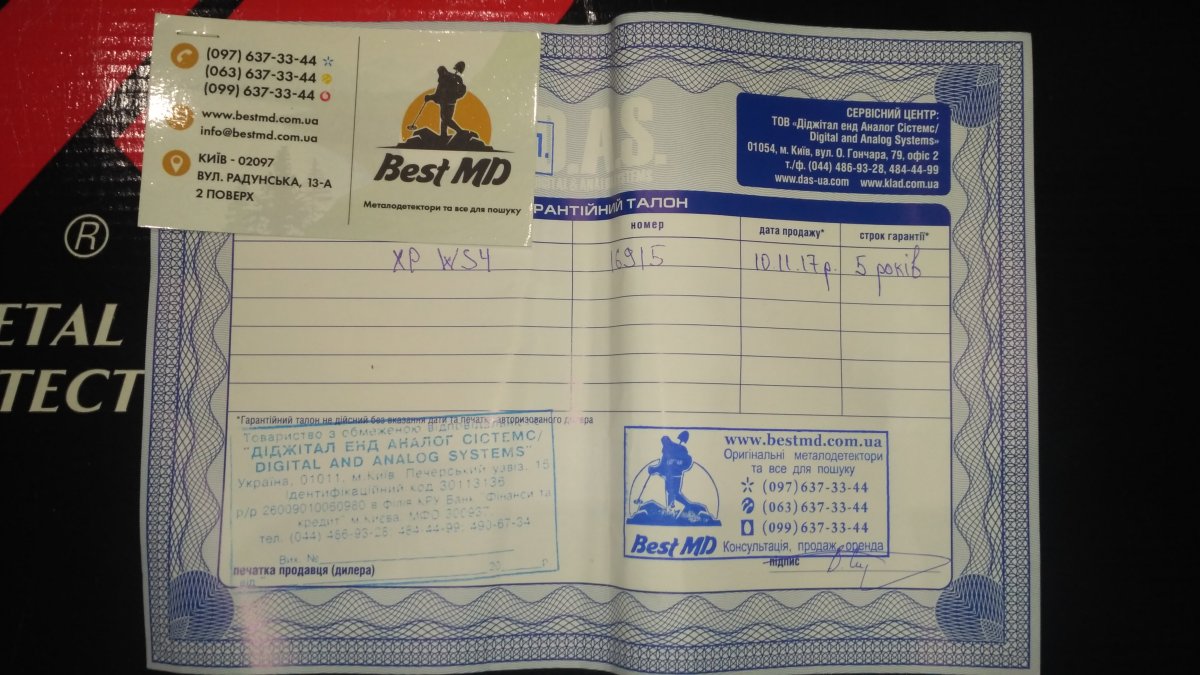 (097) 637-33-44
(063) 637-33-44
(099) 637-33-44
www.bestmd.com.ua
info@bestmd.com.ua
КИЇВ - 02097
ВУЛ. РАДУНСЬКА, 13-А
2 ПОВЕРХ
Best MD
Металодетектори та все для пошуку
®
ETAL
TECT
.A.S.
СЕРВІСНИЙ ЦЕНТР:
ТОВ «Діджітал енд Аналог Сістемс/
Digital and Analog Systems»
01054, м. Київ, вул. О. Гончара, 79, офіс 2
т./ф. (044) 486-93-28, 484-44-99
www.das-ua.com www.klad.com.ua
АРАНТІЙНИЙ ТАЛОН
номер
дата продажу*
строк гарантії*
XP WS4
16915
10.11.17р.
5 років
*Гарантійний талон не дійсний без вказання дати та печатки авторизованого дилера
Товариство з обмеженою відповідальністю
"ДІДЖІТАЛ ЕНД АНАЛОГ СІСТЕМС/
DIGITAL AND ANALOG SYSTEMS"
Україна, 01011, м. Київ, Печерський узвіз, 15
Ідентифікаційний код 30113136
р/р 26009010060980 в Філія КРУ Банк "Фінанси та
кредит" м.Києва, МФО 300937
тел. (044) 486-93-28, 484-44-99, 490-67-34
Вих. №
20 р.
від
печатка продавця (дилера)
www.bestmd.com.ua
Оригінальні металодетектори
та все для пошуку
(097) 637-33-44
(063) 637-33-44
(099) 637-33-44
Best MD
Консультація, продаж, оренда
підпис